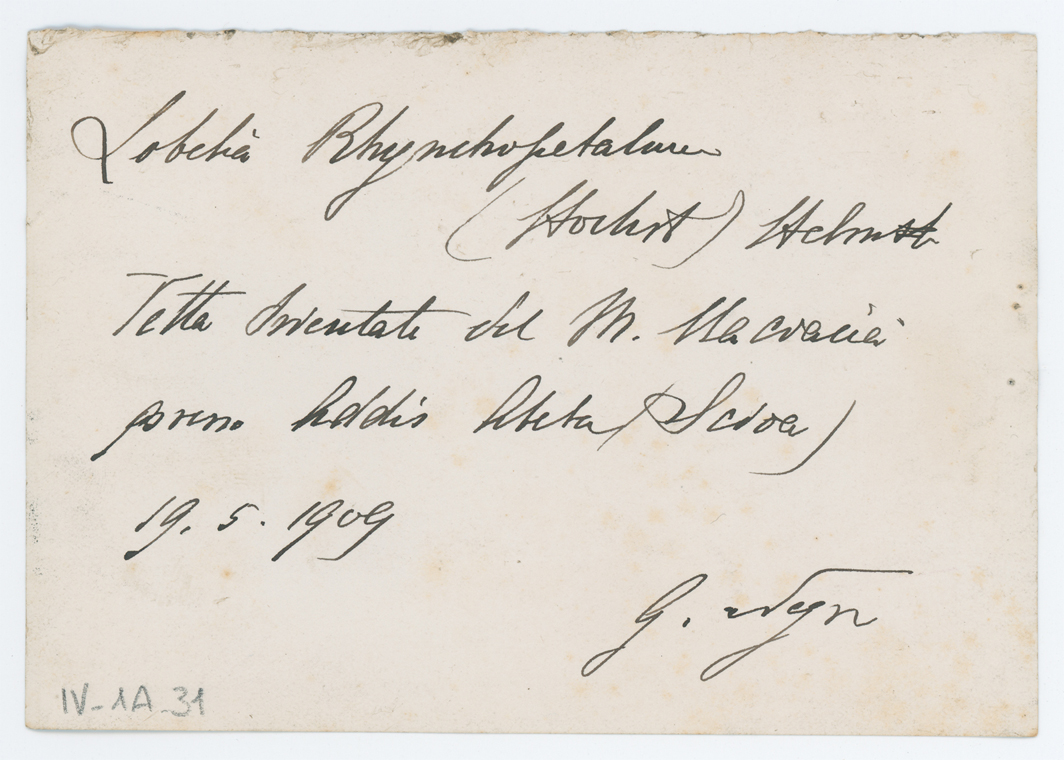 Lobelia Rhynchopetalum
(Hochst) Hemst
Vetta Orientale del M. Managascià
presso Addis Abeba (Scioa)
19. 5. 1909
G. Negri
IV-1A-31